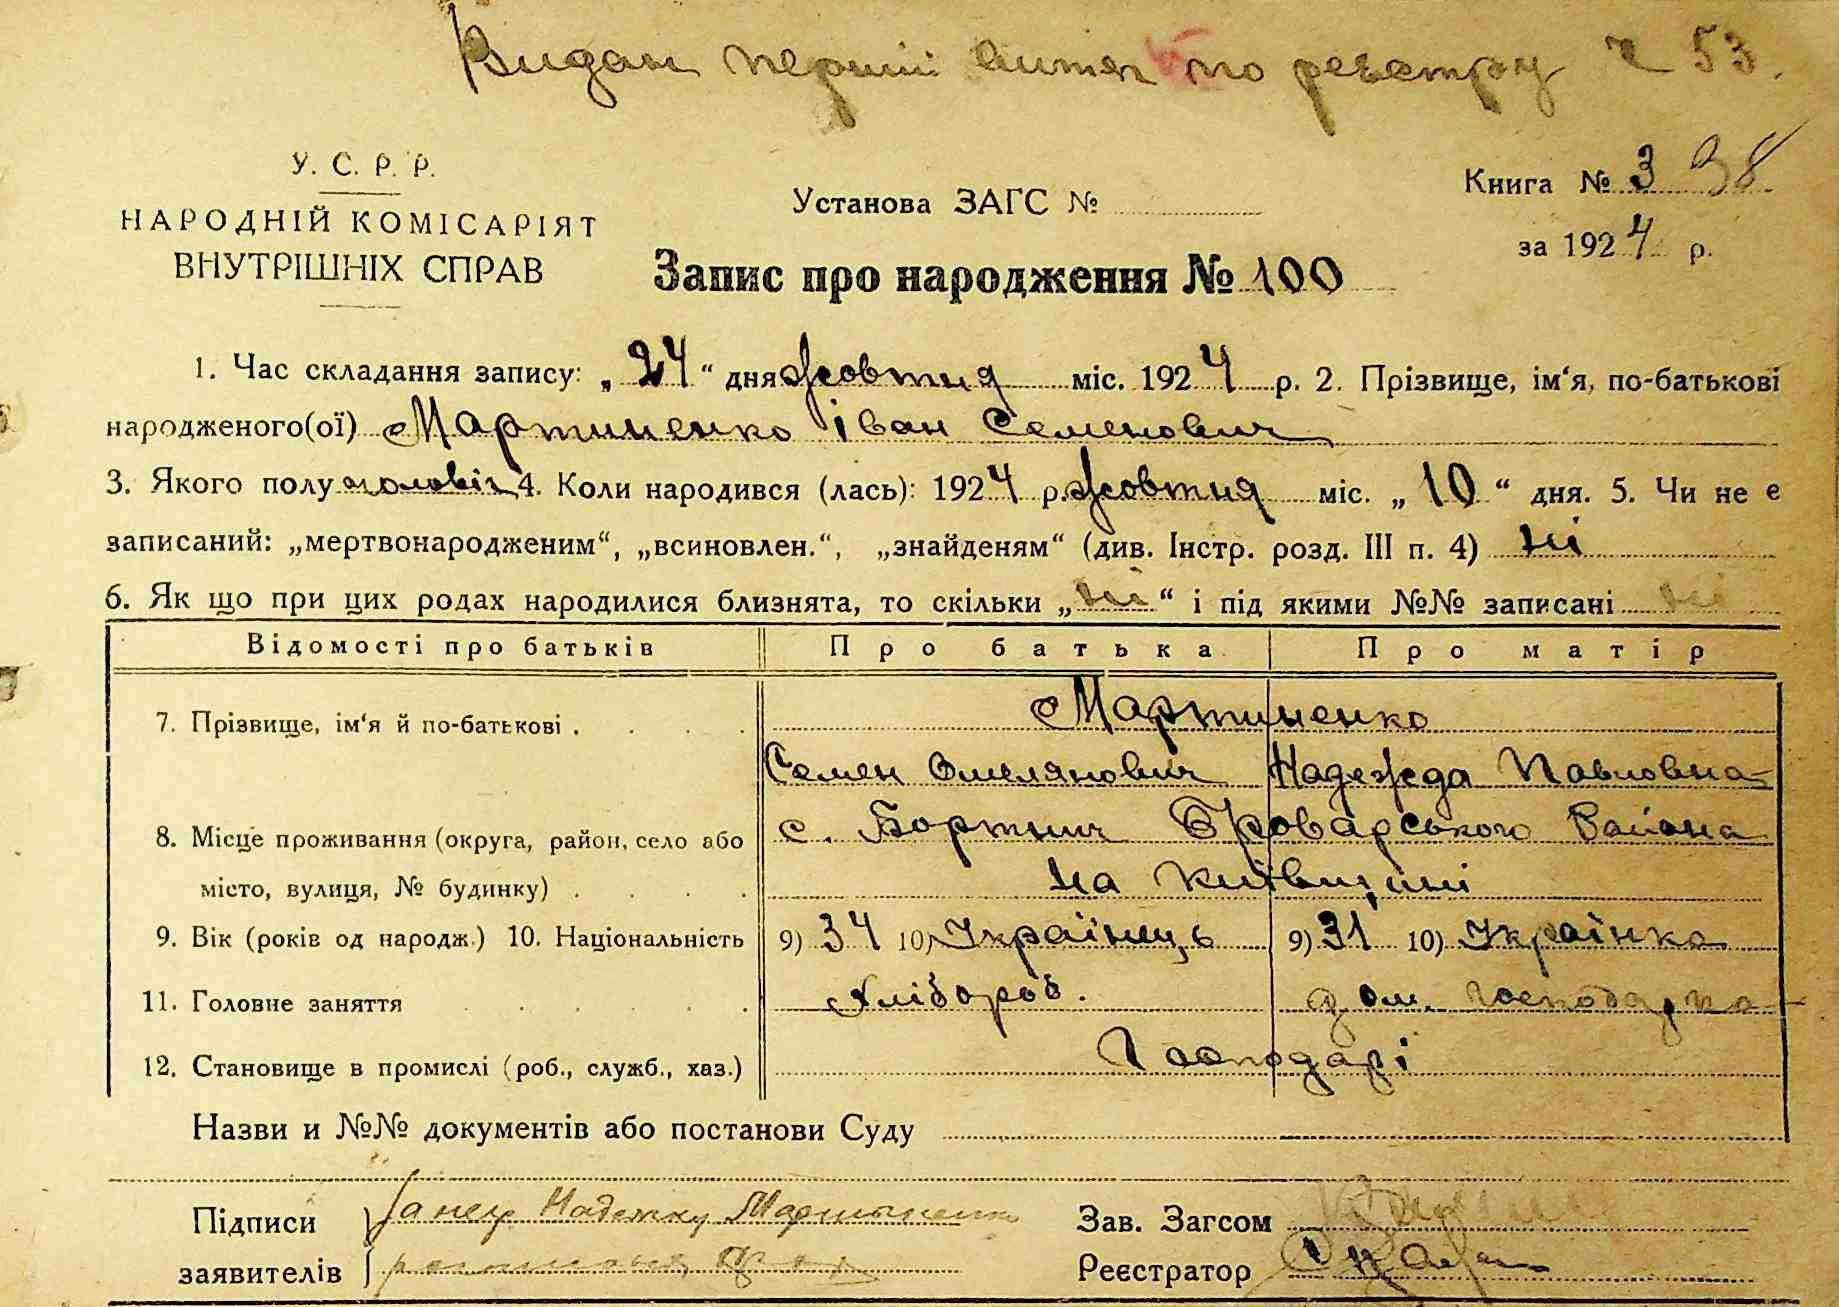 Видан перший витяг по реєстру č 53.
У. С. Р. Р.
НАРОДНІЙ КОМІСАРІЯТ
ВНУТРІШНІХ СПРАВ
Установа ЗАГС №
Книга № 3 98
за 1924 р.
Запис про народження № 100
1. Час складання запису: „24“ дня жовтня міс. 1924 р. 2. Прізвище, ім‘я, по-батькові
народженого(ої) Мартиненко Іван Семенович
3. Якого полу чоловіч 4. Коли народився (лась): 1924 р. жовтня міс. „10“ дня. 5. Чи не є
записаний: „мертвонародженим“, „всиновлен.“, „знайденям“ (див. Інстр. розд. III п. 4) ні
6. Як що при цих родах народилися близнята, то скільки „ні“ і під якими №№ записані ні
Відомості про батьків Про батька Про матір
7. Прізвище, ім‘я й по-батькові Мартиненко
Семен Омелянович Надежда Павловна
8. Місце проживання (округа, район, село або с. Бортнич Броварського Района
місто, вулиця, № будинку) на Київщині
9. Вік (років од народж.) 10. Національність 9) 34 10) Українець 9) 31 10) Українка
11. Головне заняття Хлібороб. дом. господарка
12. Становище в промислі (роб., служб., хаз.) Господарі
Назви и №№ документів або постанови Суду
Підписи Надежку Мартыненко
заявителів
Зав. Загсом
Реєстратор